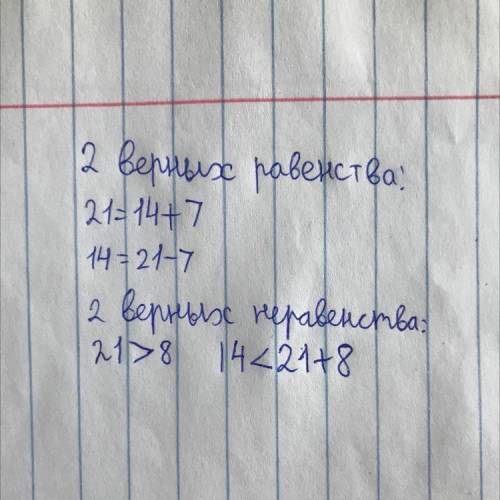 2 верных равенства:
21=14+7
14=21-7
2 верных неравенства:
21>8 14<21+8